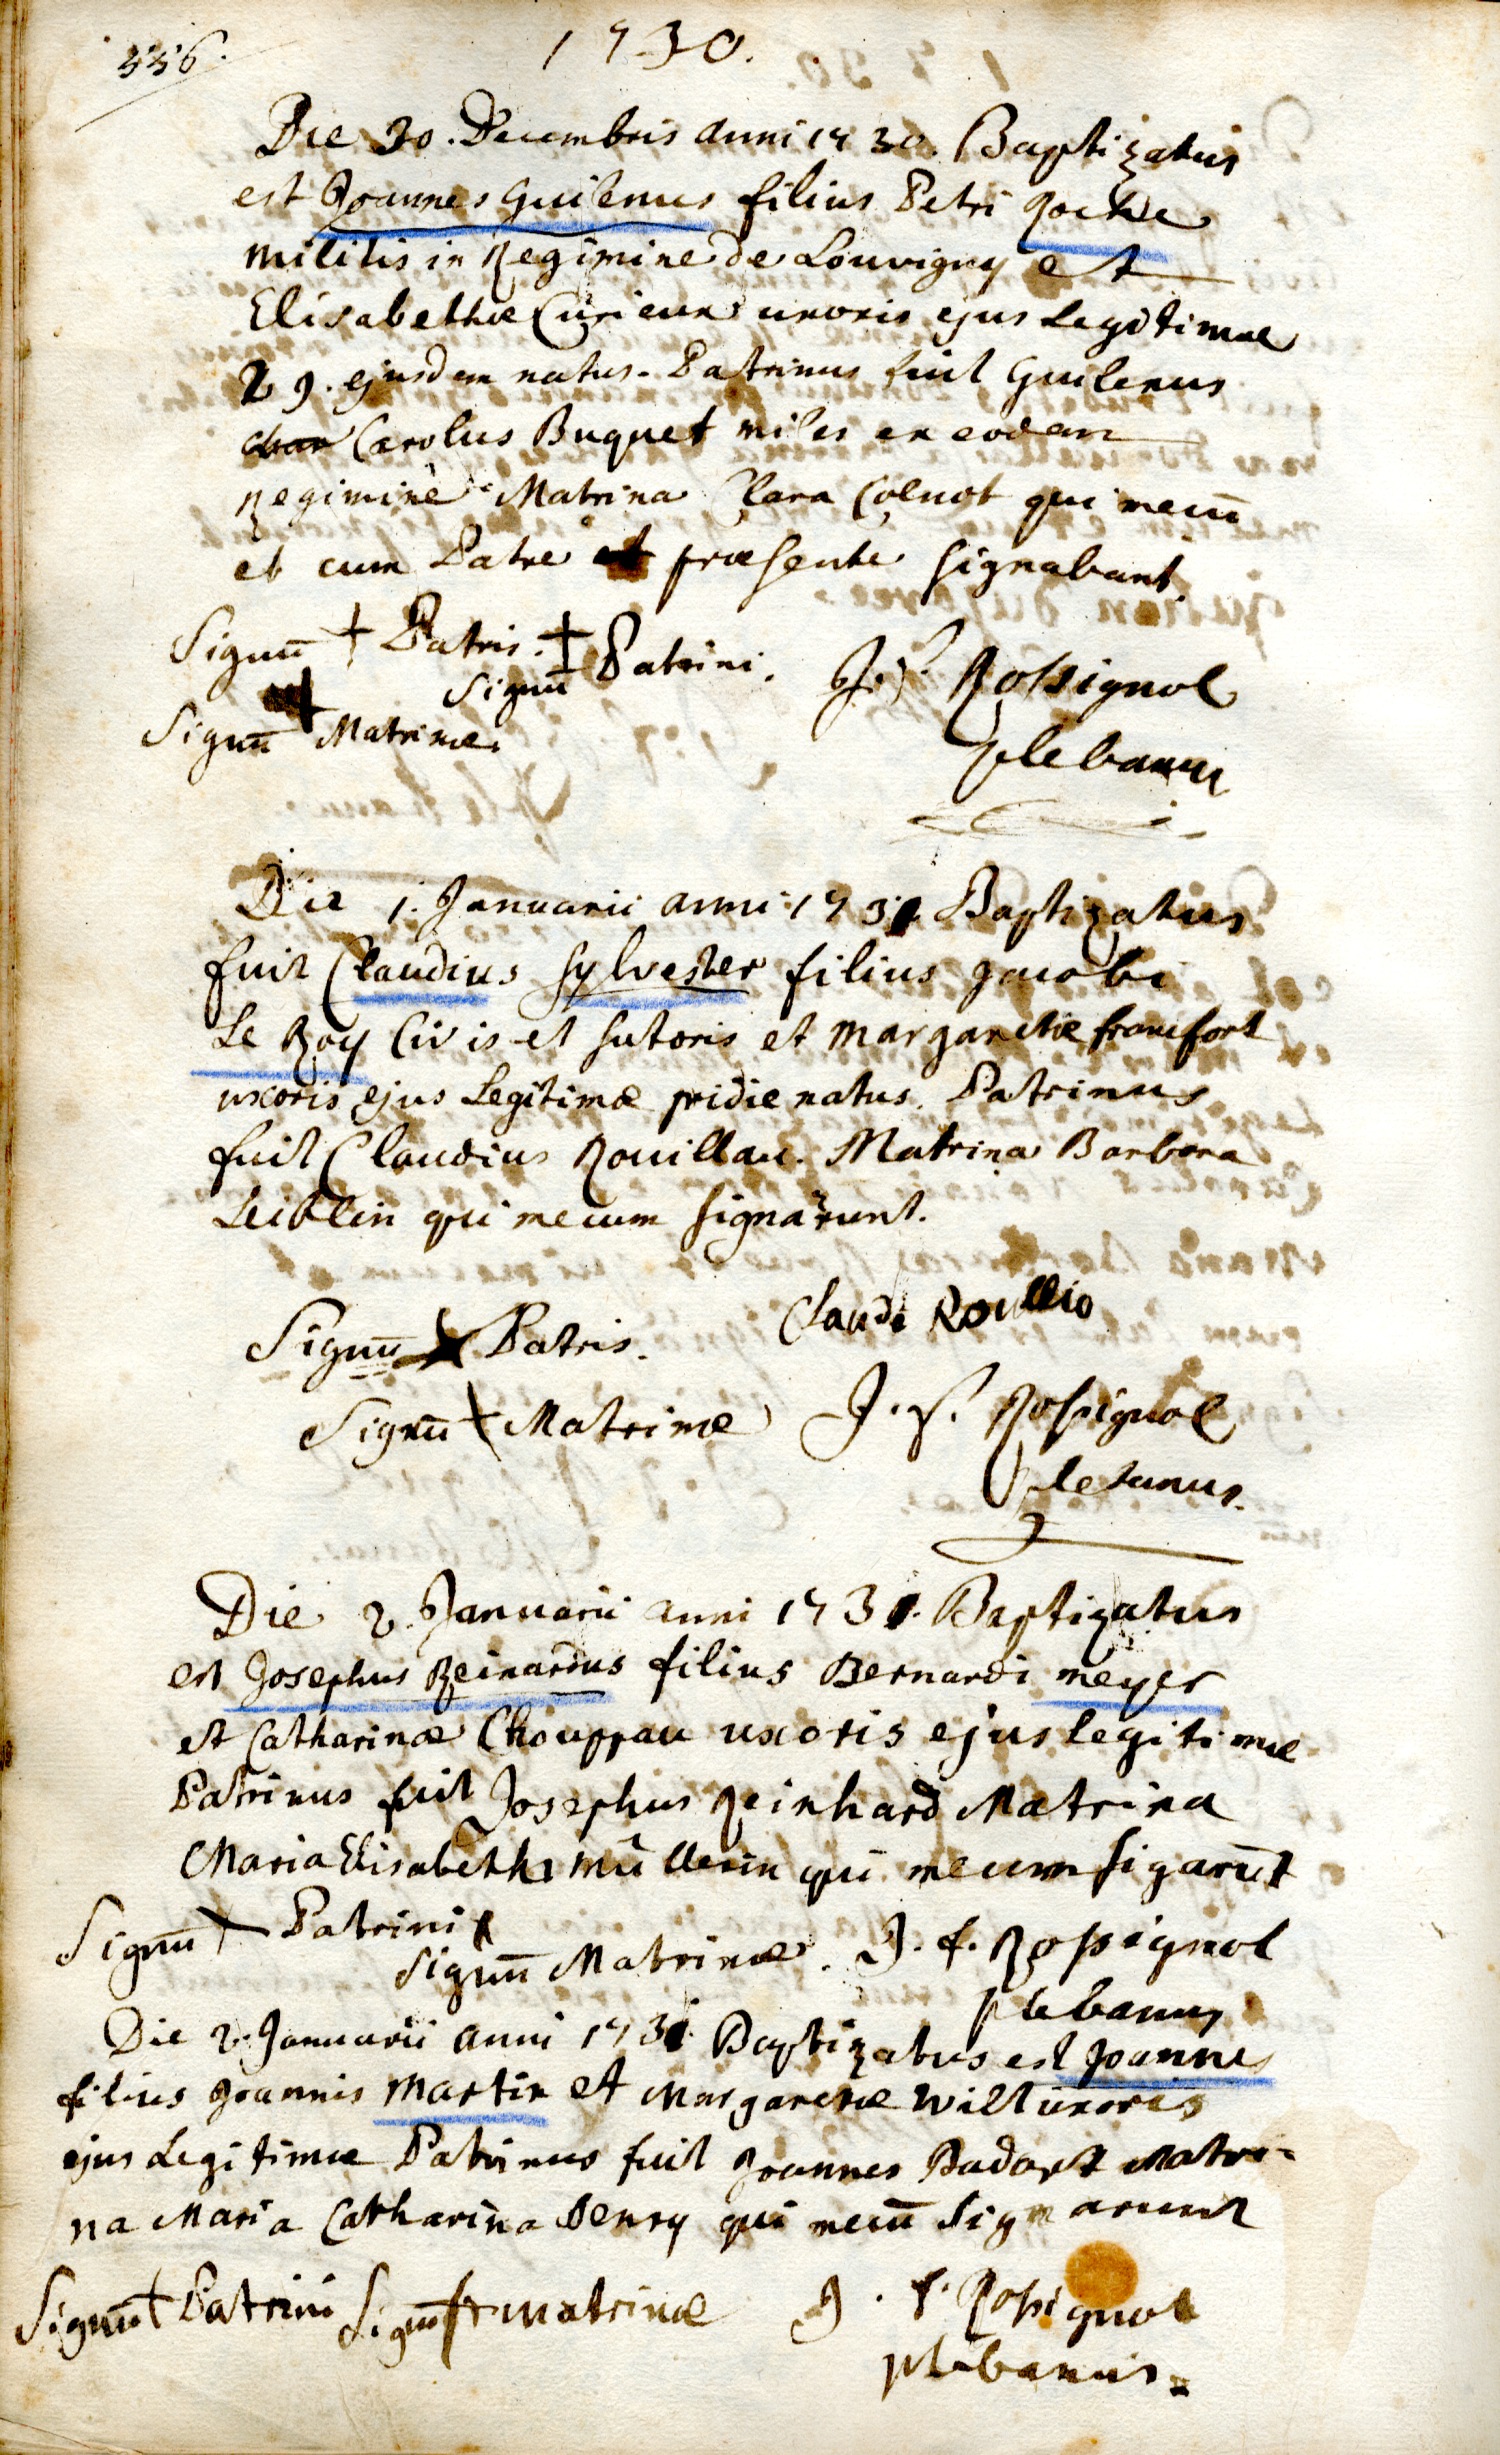 336.
1730.
Die 30. Decembris anni 1730. Baptizatus
est Joannes Guilenus filius Petri Rocke
militis in Regimine de Louvigny et
Elisabethæ Curieux uxoris ejus Legitimæ
29. ejusdem natus. Patrinus fuit Guilenus
Carolus Buquet miles ex eodem
Regimine Matrina Clara Colnot qui mecū
et cum Patre præsente signabant.
Signū + Patris. + Patrini.
Signū
Signū + Matrinæ.
J. f. Rossignol
plebanus
Die 1. Januarii anni 1731. Baptizatus
fuit Claudius Sylvester filius Jacobi
Le Roy Civis et sutoris et Margarethæ francfort
uxoris ejus Legitimæ pridie natus. Patrinus
fuit Claudius Rouillau. Matrina Barbara
Leiblin qui mecum signarunt.
Claude Roullio
Signū + Patris.
Signū + Matrinæ
J. f. Rossignol
plebanus.
Die 2. Januarii anni 1731. Baptizatus
est Josephus Reinardus filius Bernardi meyer
et Catharinæ Chouppau uxoris ejus legitimæ
Patrinus fuit Josephus Reinhard Matrina
Maria Elisabetha müllerin qui mecum sigarūt
Signū + Patrini +
Signū Matrinæ.
J. f. Rossignol
plebanus
Die 2. Januarii anni 1731. Baptizatus est Joannes
filius Joannis Martin et Margarethæ Wilt uxoris
ejus Legitimæ Patrinus fuit Joannes Badort Matri-
na Maria Catharina Henry qui mecū signarunt
Signū + Patrini Signū + Matrinæ
J. f. Rossignol
plebanus.